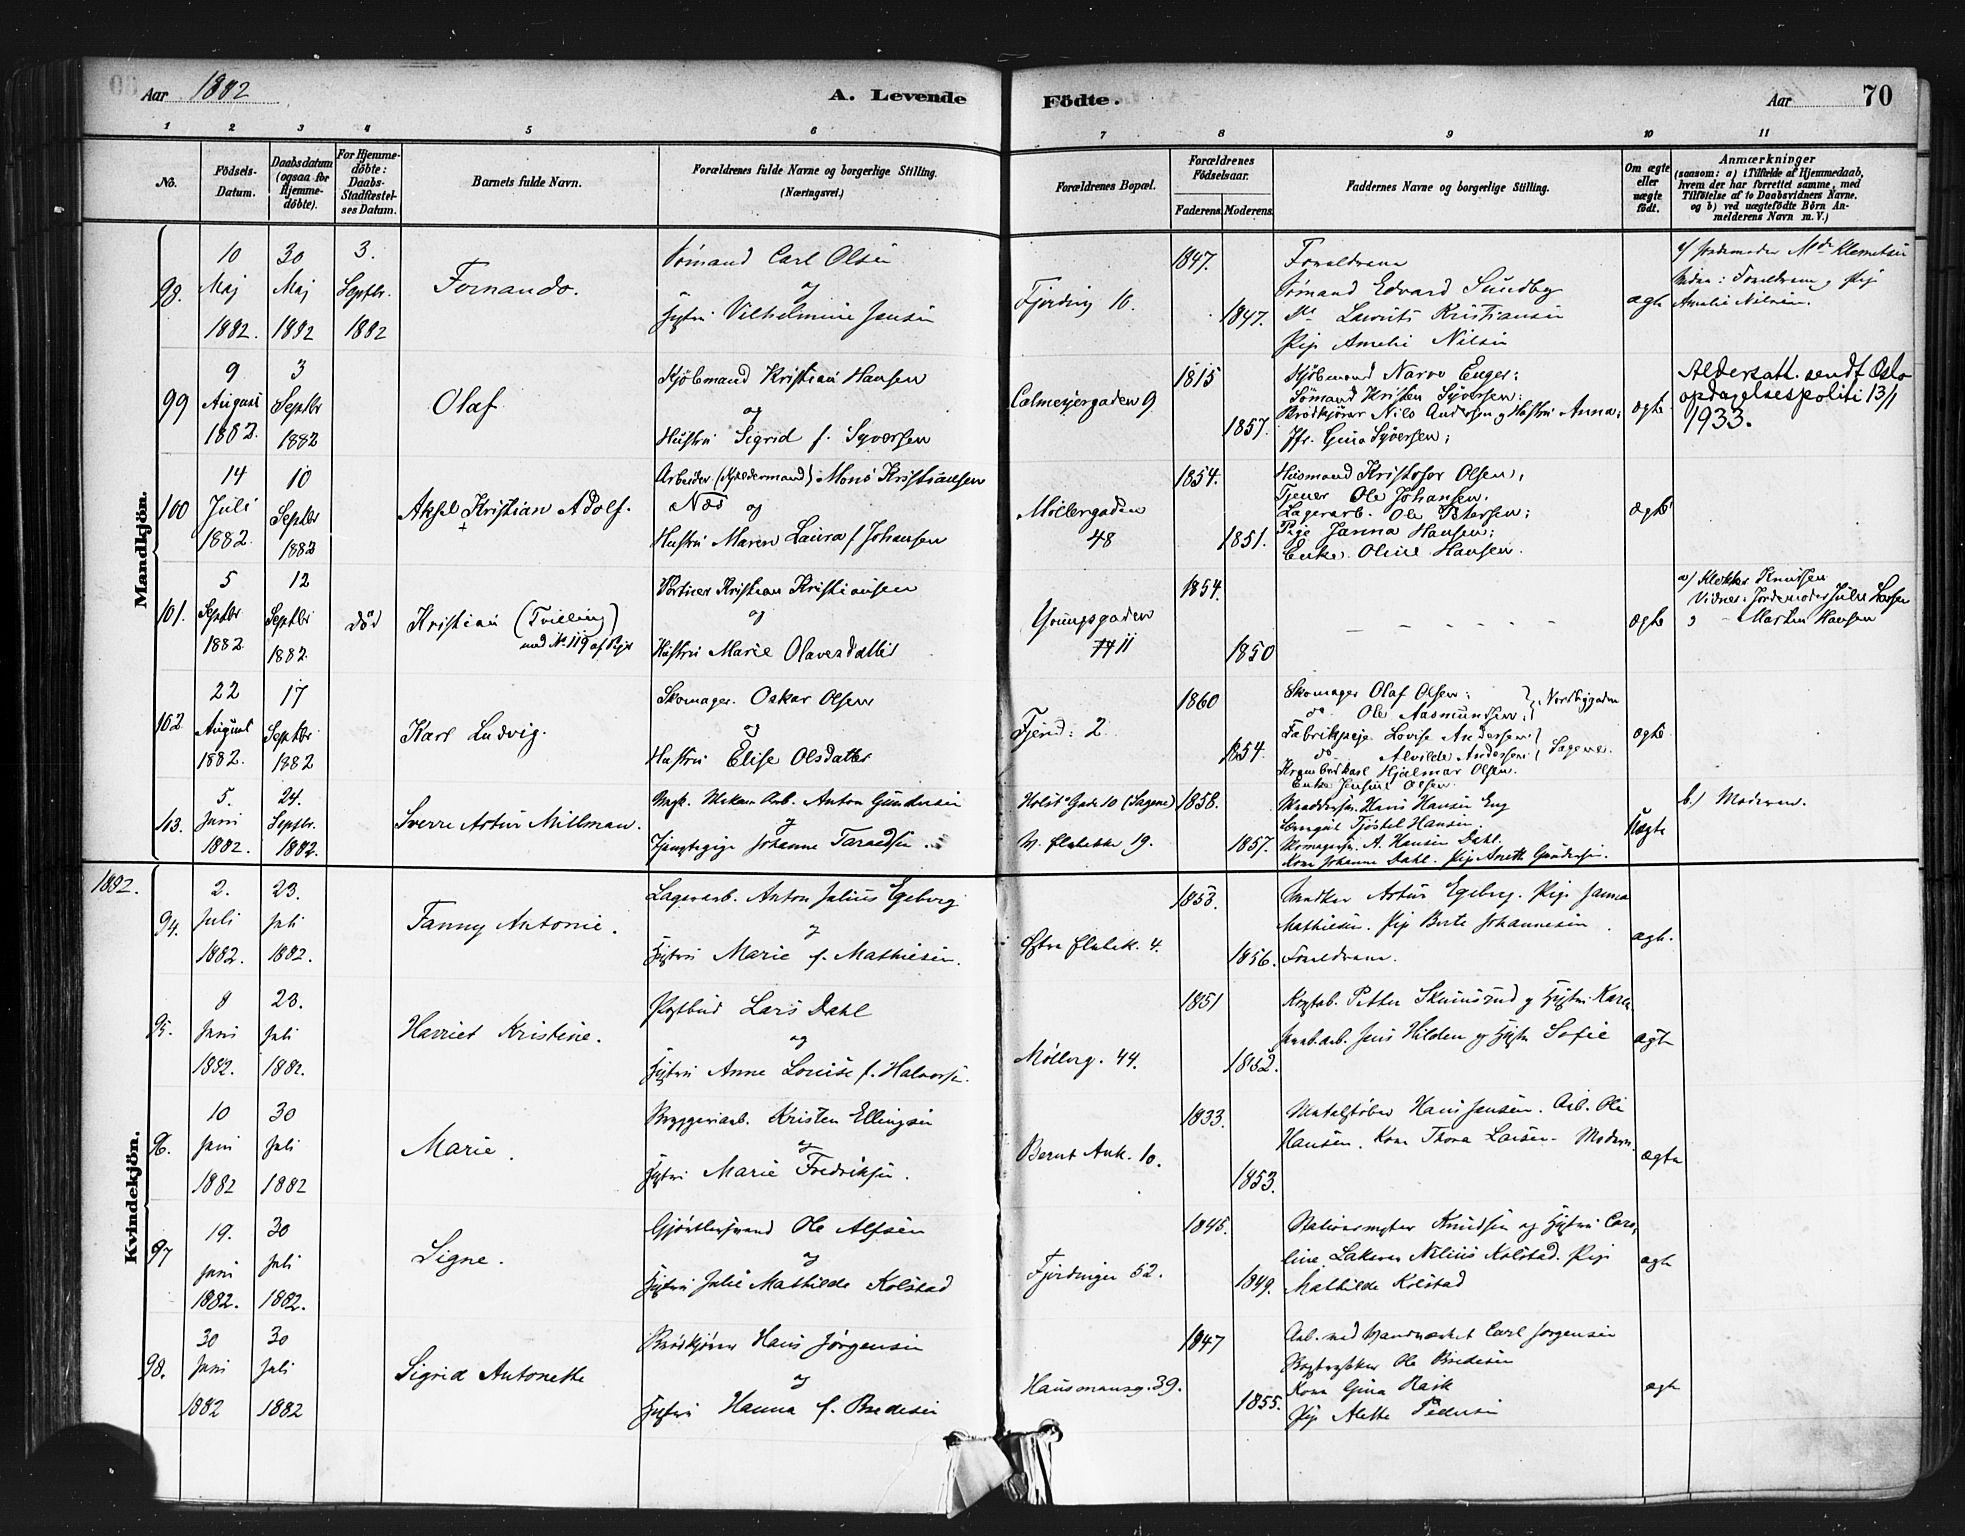 Aar 1882
A. Levende
Födte.
Aar
70
1 2 3 4 5 6 7 8 9 10 11
No.
Födsels-
Datum.
Daabsdatum
(ogsaa for
Hjemme-
döbte).
For Hjemme-
döbte:
Daabs-
Stadfæstel-
ses Datum.
Barnets fulde Navn.
Forældrenes fulde Navne og borgerlige Stilling.
(Næringsvei.)
Forældrenes Bopæl.
Forældrenes
Födselsaar.
Faderens. Moderens.
Faddernes Navne og borgerlige Stilling.
Om ægte
eller
uægte
födt.
Anmærkninger
(saasom: a) i Tilfælde af Hjemmedaab,
hvem der har forrettet samme, med
Tilföielse af to Daabsvidners Navne,
og b) ved uægtefödte Börn An-
melderens Navn m. V.)
Mandkjön.
98.
10 Maj 1882.
30 Maj 1882
3. Septbr. 1882
Fernando.
Sømand Carl Olsen
og
Hustru Vilhelmine Jensen
Fjerding 10.
1847.
1847.
Forældrene
Sømand Edvard Sundby
Do Lauritz Kristiansen
Pige Amelie Nilsen
ægte
Amelie Nilsen.
99
9 August 1882.
3 Septbr 1882
Olaf
Kjøbmand Kristian Hansen
og
Hustru Sigrid f. Syversen
Calmeyergaden 9
1815
1857.
Kjøbmand Narve Enger;
Sømand Kristen Syversen;
Brødkjører Nils Andersen og Hustru Anna;
Jfr. Gina Syversen;
ægte
Aldersatt. sendt Oslo
opdagelsespoliti 13/1
1933.
100
14 Juli 1882.
10 Septbr 1882
Aksel Kristian Adolf.
Arbeider Mons Kristiansen
Næs og
Hustru Maren Laura f Johansen
Møllergaden
48
1854.
1851.
Husmand Kristofer Olsen,
Tjener Ole Johansen.
Lagerarb. Ole Petersen;
Pige Janna Hansen;
Enke Oline Hansen.
ægte
101.
5 Septbr 1882
12 Septbr 1882.
død
Kristian (Tvilling)
med No 119 af Piger
Portner Kristian Kristiansen
og
Hustru Marie Olavesdatter
Youngsgaden
11
1854.
1850
ægte
a/ Klokker Knutsen
Vidner: Jordemoder Julie Hansen
Marten Hansen
102
22 August 1882.
17 Septbr 1882
Karl Ludvig.
Skomager. Oskar Olsen
og
Hustru Elise Olsdatter
Fjerd: 2.
1860
1854.
Skomager Olaf Olsen;
do Ole Aasmundsen; Nordbygaden
Fabrikpige Lovise Andersen
do Alvilde Andersen Sagene.
Hjalmar Olsen.
ægte
103.
5. Juni 1882.
24. Septbr. 1882.
Sverre Artur Millman.
Ungk. Mekan. Arb. Anton Gundersen
og
Tjenestepige Johanne Taraldsen.
Holst Gade 10 (Sagene)
1858.
1857.
Hans Hansen Eng
Tjøstel Hansen.
Skomagersv. A. Hansen Dahl.
Kone Johanne Dahl. Pige Anette Gundersen.
Uægte
b.) Moderen.
Kvindekjön.
1882.
94.
2. Juli 1882.
23. Juli 1882.
Fanny Antonie.
Lagerarb. Anton Julius Egeberg
og
Hustru Marie f. Mathisen.
Østre Elvbk. 4.
1853.
1856.
Artur Egeberg. Pige Janna
Mathisen. Pige Berte Johannesen.
Forældrene.
ægte.
95.
8 Juni 1882.
23. Juli 1882.
Harriet Kristine.
Postbud Lars Dahl
og
Hustru Anne Louise f. Halvorsen.
Møllerg. 44.
1851
1852.
Jens Hilden og Hustru Sofie
ægte
96.
10 Juni 1882
30 Juli 1882
Marie.
Bryggeriarb. Kristen Ellingsen
og
Hustru Marie Fredriksen.
Bernt Ank. 10.
1833.
1853.
Metalstøber Hans Jensen. Arb. Ole
Hansen. Kone Thora Larsen. Moderen.
ægte
97
19. Juni 1882.
30 Juli 1882.
Signe.
Gjørtlersvend Ole Alfsen
og
Hustru Julie Mathilde Kolstad
Fjerdingen 52.
1845.
1849.
Stationsmester Knudsen og Hustru Caro-
line. Nilius Kolstad. Pige
Mathilde Kolstad
ægte
98.
30 Juni 1882
30 Juli 1882
Sigrid Antonette
Brødkjører Hans Jørgensen
og
Hustru Hanna f. Bredesen
Hausmansg. 39.
1847
1855.
Arb. ved Vandverket Carl Jørgensen
Bogtrykker Ole Bredesen
Kone Gina Rask
Pige Alette Pedersen
ægte